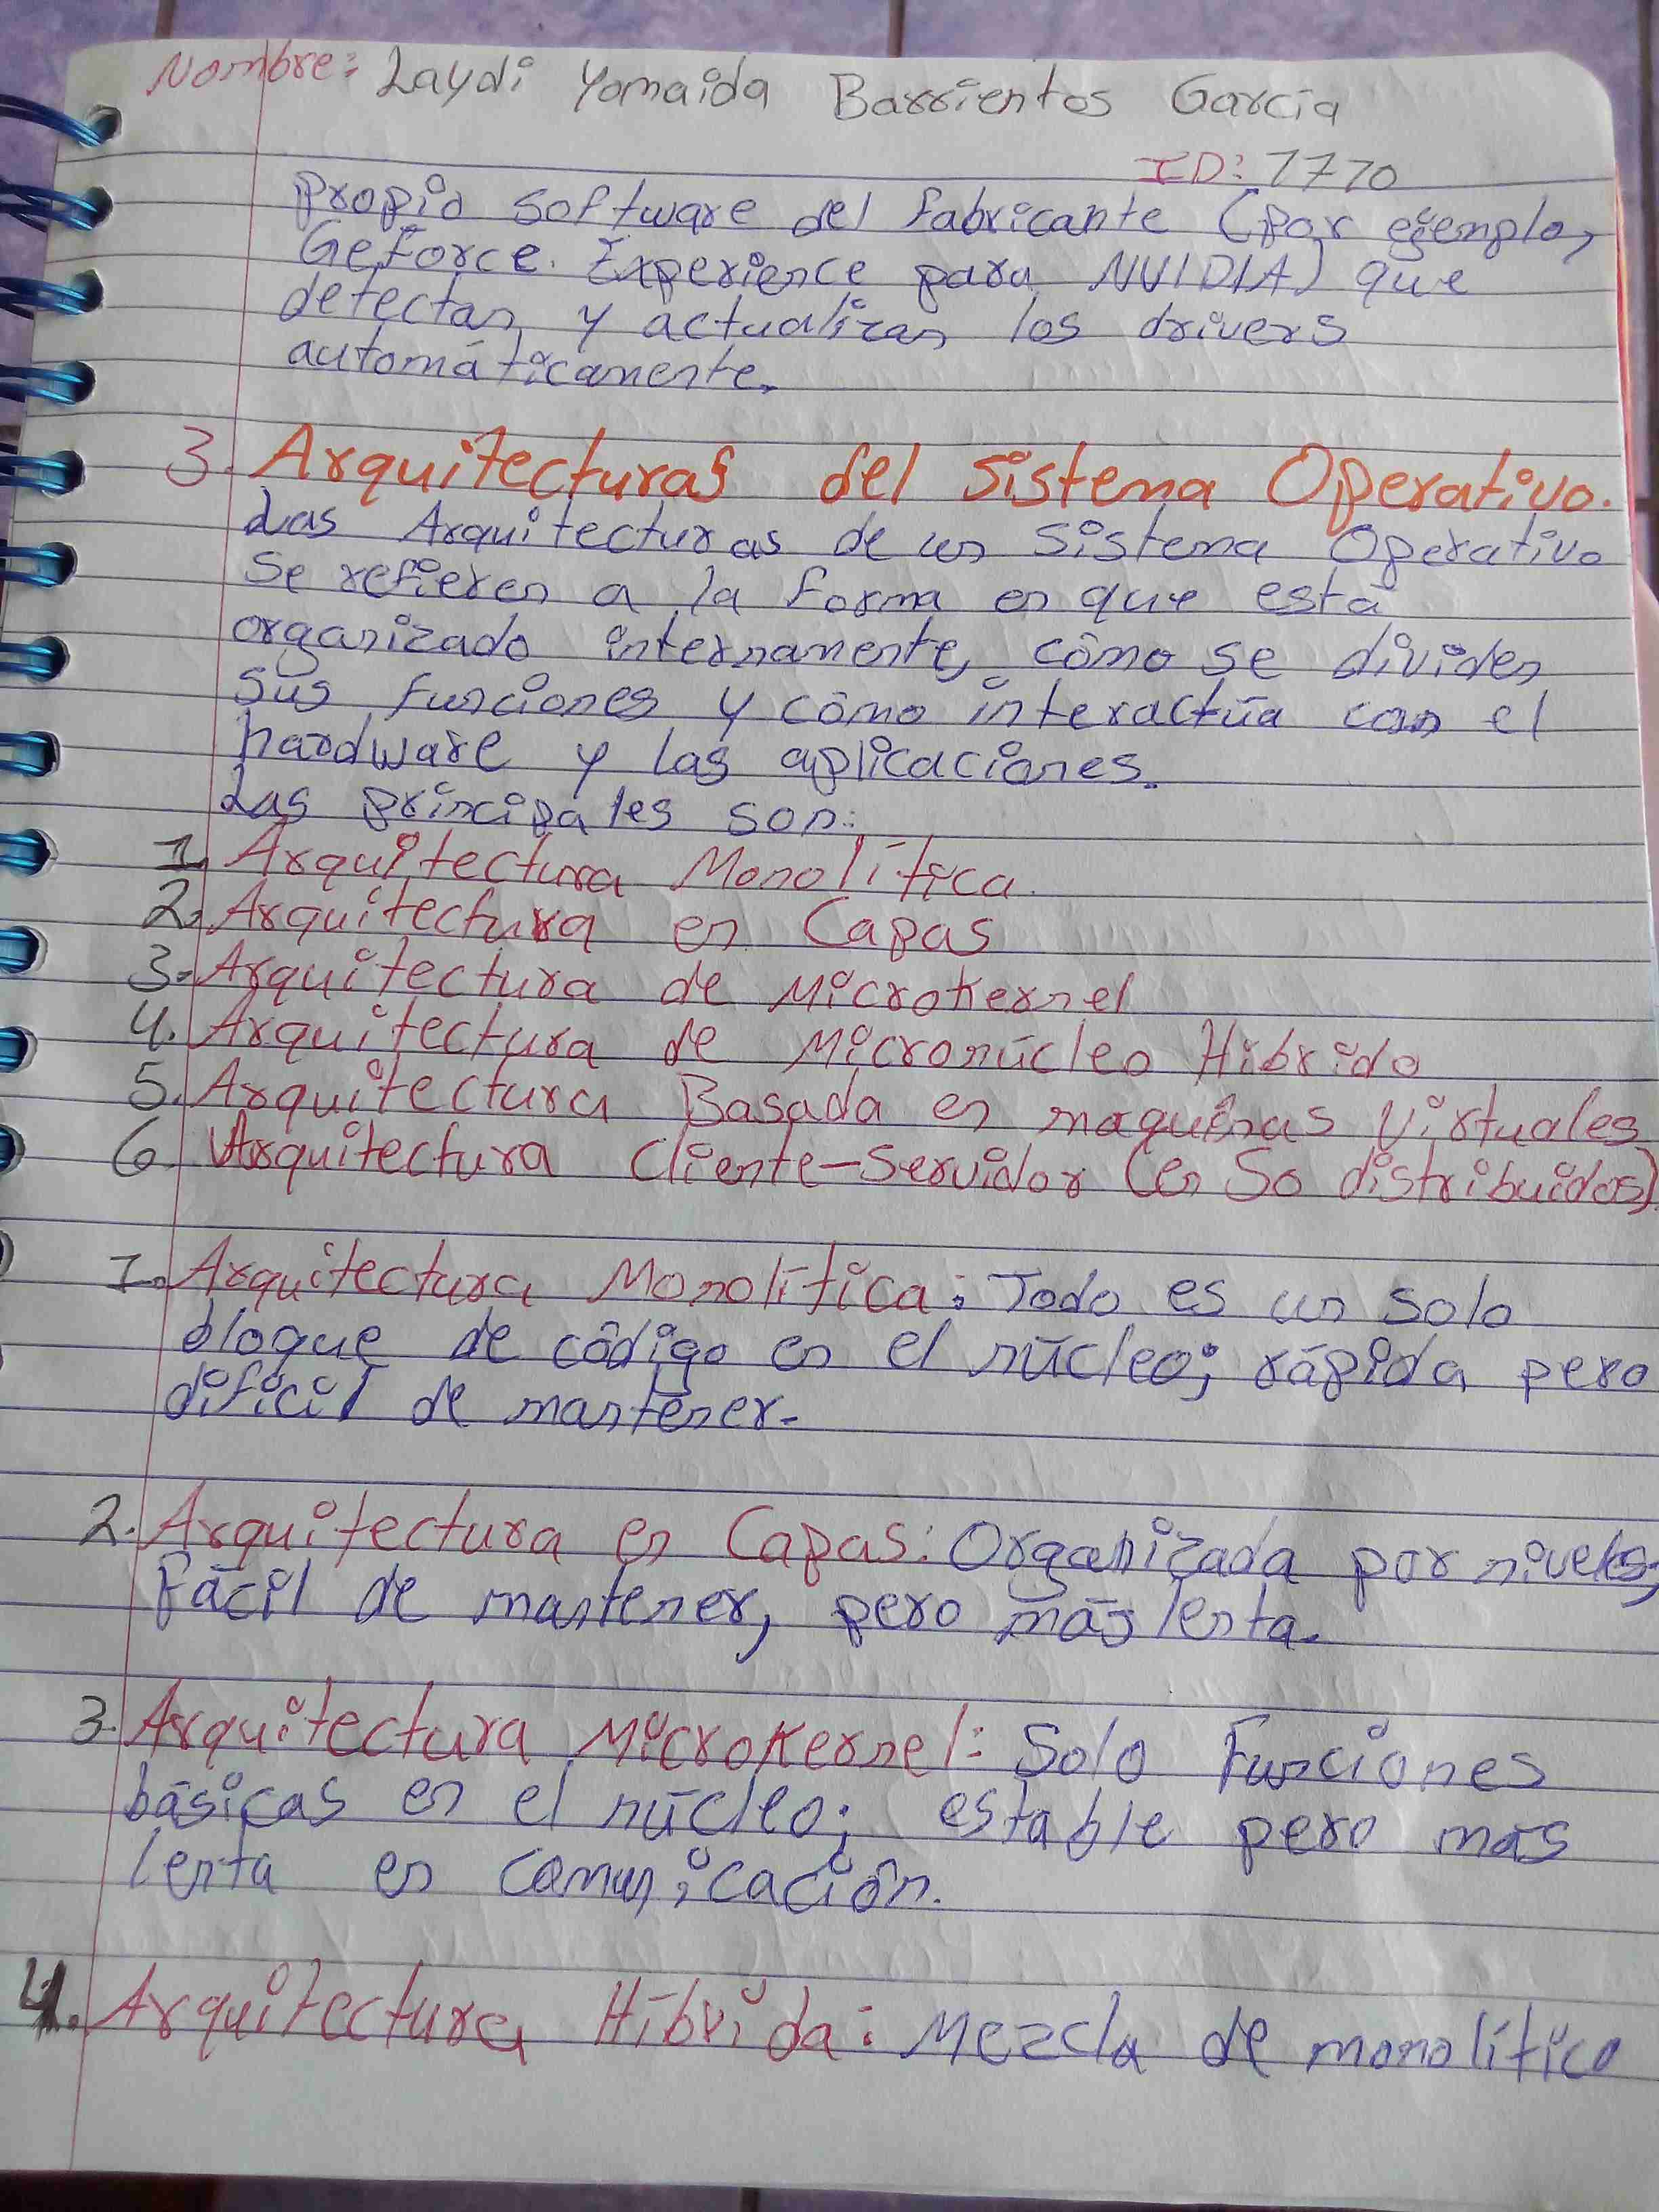 Nombre: Laydi Yomaida Barrientos García
ID: 7770
propio software del fabricante (por ejemplo,
GeForce Experience para NVIDIA) que
detectan y actualizan los drivers
automáticamente.
3. Arquitecturas del Sistema Operativo.
Las Arquitecturas de un Sistema Operativo
se refieren a la forma en que está
organizado internamente, cómo se dividen
sus funciones y cómo interactúa con el
hardware y las aplicaciones.
Las principales son:
1. Arquitectura Monolítica.
2. Arquitectura en Capas
3. Arquitectura de Microkernel
4. Arquitectura de Micronúcleo Híbrido
5. Arquitectura Basada en maquinas Virtuales
6. Arquitectura Cliente-Servidor (en So distribuidos)
1. Arquitectura Monolítica: Todo es un solo
bloque de código en el núcleo; rápida pero
dificil de mantener.
2. Arquitectura en Capas: Organizada por niveles;
Fácil de mantener, pero más lenta.
3. Arquitectura Microkernel: Solo Funciones
básicas en el núcleo; estable pero mas
lenta en comunicación.
4. Arquitectura Híbrida: Mezcla de monolítico